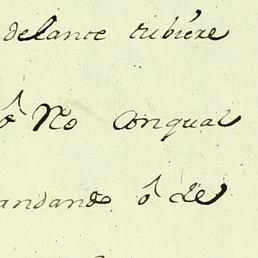 delante tubiere
ô No Conqual
andando ô de